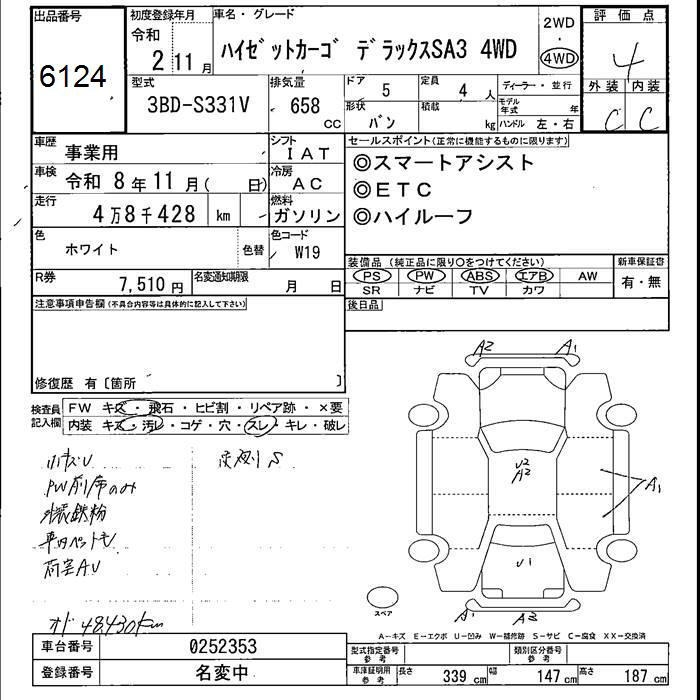 出品番号
6124
初度登録年月
令和
2 11月
車名・グレード
ハイゼットカーゴ デラックスSA3 4WD
2WD
・
4WD
評価点
4
外装 内装
C C
型式
3BD-S331V
排気量
658
cc
ドア
5
定員
4 人
ディーラー・並行
形状
バン
積載
kg
モデル年式
年
ハンドル 左・右
車歴
事業用
シフト
IAT
車検
令和 8年11月( 日)
冷房
AC
走行
4万8千428 km
燃料
ガソリン
色
ホワイト
色替
色コード
W19
R券
7,510円
名変通知期限
月 日
セールスポイント(正常に機能するものに限ります)
◎スマートアシスト
◎ETC
◎ハイルーフ
装備品(純正品に限り○をつけてください)
PS PW ABS エアB AW
SR ナビ TV カワ
新車保証書
有・無
後日品
注意事項申告欄(不具合内容等は具体的に記入して下さい)
修復歴 有〔箇所 〕
検査員
記入欄
FW キズ・飛石・ヒビ割・リペア跡・×要
内装 キズ・汚レ・コゲ・穴・スレ・キレ・破レ
小キズU
PW前席のみ
外装鉄粉
車内ペット毛
荷室AU
オド 48430km
A2 A1
U2
A2
A1
U1
A1 A3
スペア
A-キズ E-エクボ U-凹み W-補修跡 S-サビ C-腐食 XX-交換済
車台番号
0252353
登録番号
名変中
型式指定番号
参考
類別区分番号
参考
車庫証明用
参考
長さ 339 cm 幅 147 cm 高さ 187 cm